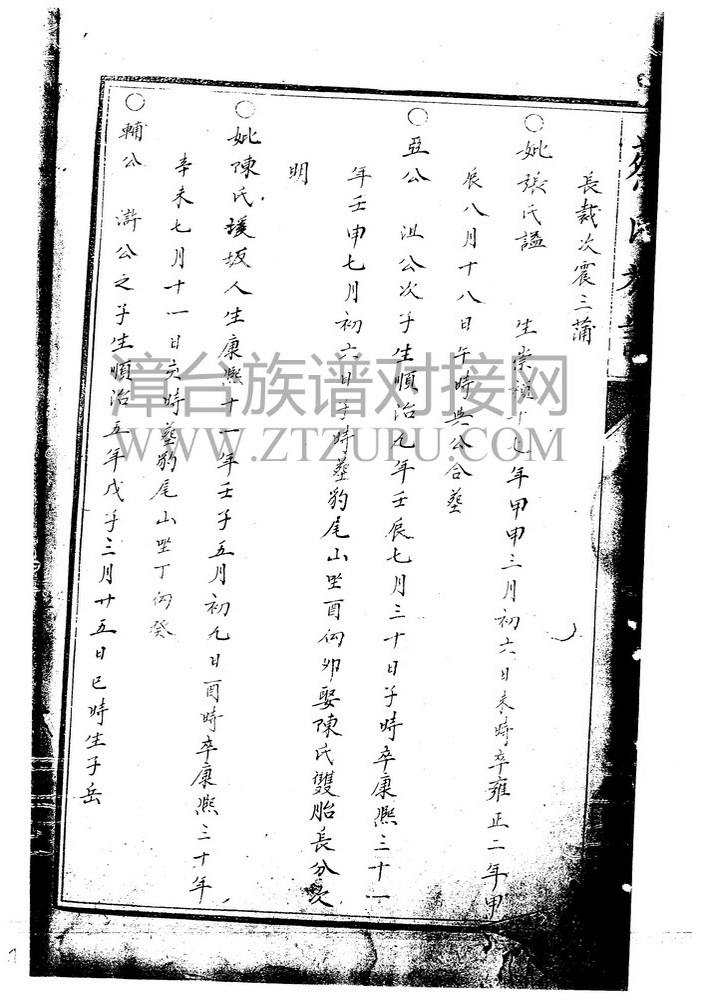 長裁次震三蒲
○妣張氏諡 生崇禎十七年甲申三月初六日未時卒雍正二年甲
辰八月十八日午時與公合塟
○亞公 沮公次子生順治九年壬辰七月三十日子時卒康熙三十一
年壬申七月初六日子時塟豹尾山坐酉向卯娶陳氏雙胎長分
明
○妣陳氏瑗坂人生康熙十一年壬子五月初九日酉時卒康熙三十年
辛未七月十一日亥時塟豹尾山坐丁向癸
○輔公 滸公之子生順治五年戊子三月廿五日巳時生子岳
漳台族谱对接网
WWW.ZTZUPU.COM